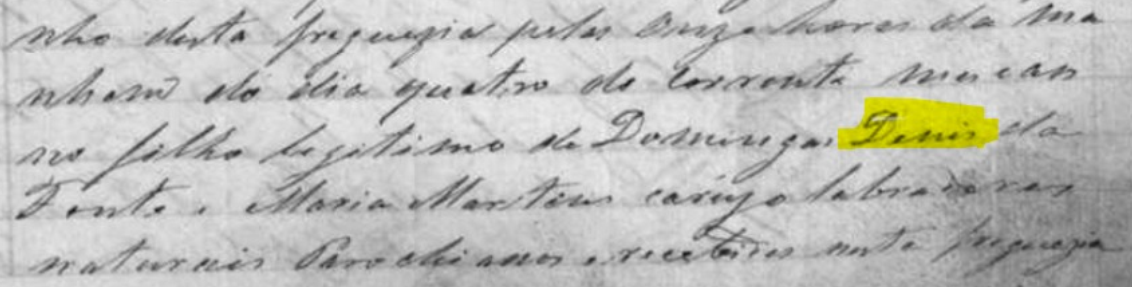 nho desta freguezia pelas onze horas da ma
nham do dia quatro do corrente mes e an
no filho legitimo de Domingos Denis da
Fonte e Maria Martins labradores
naturais Parochianos e recebidos nesta freguezia